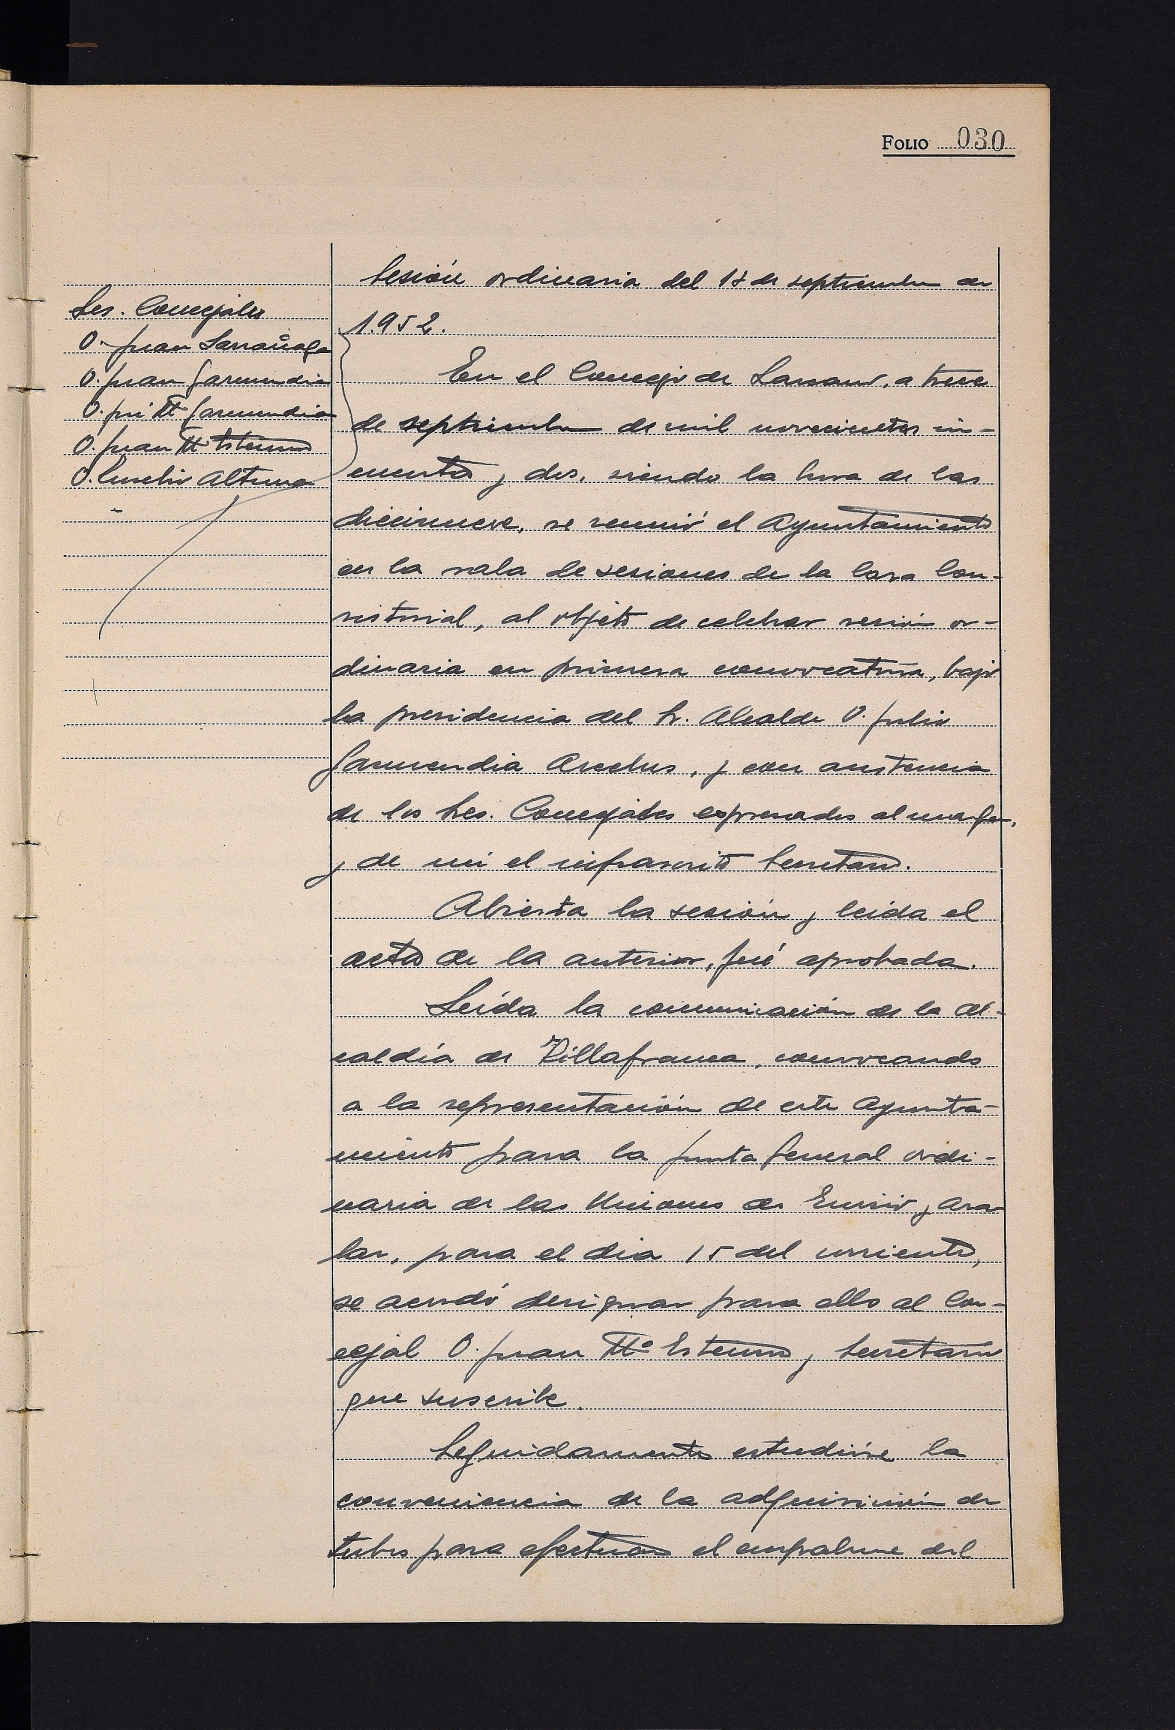 FOLIO 030
Sesión ordinaria del 13 de septiembre de
1.952.
Sres. Concejales
D. Juan Larrañaga
D. Juan Garmendia
D. José Mª Garmendia
D. Juan Mª Estensoro
D. Eusebio Altuna
En el Concejo de Lazcano, a trece
de septiembre de mil novecientos cin-
cuenta y dos, siendo la hora de las
diecinueve, se reunió el Ayuntamiento
en la sala de sesiones de la Casa Con-
sistorial, al objeto de celebrar sesión or-
dinaria en primera convocatoria, bajo
la presidencia del Sr. Alcalde D. Julio
Garmendia Arcelus, y con asistencia
de los Sres. Concejales expresados al margen,
y de mi el infrascrito Secretario.
Abierta la sesión y leida el
acta de la anterior, fué aprobada.
Leída la comunicación de la Al-
caldía de Villafranca, convocando
a la representación de este Ayunta-
miento para la Junta General ordi-
naria de las Uniones de Enirio y Ara-
lar, para el día 15 del corriente,
se acordó designar para ello al Con-
cejal D. Juan Mª Estensoro y Secretario
que suscribe.
Seguidamente estudióse la
conveniencia de la adquisición de
tubos para efectuar el empalme del